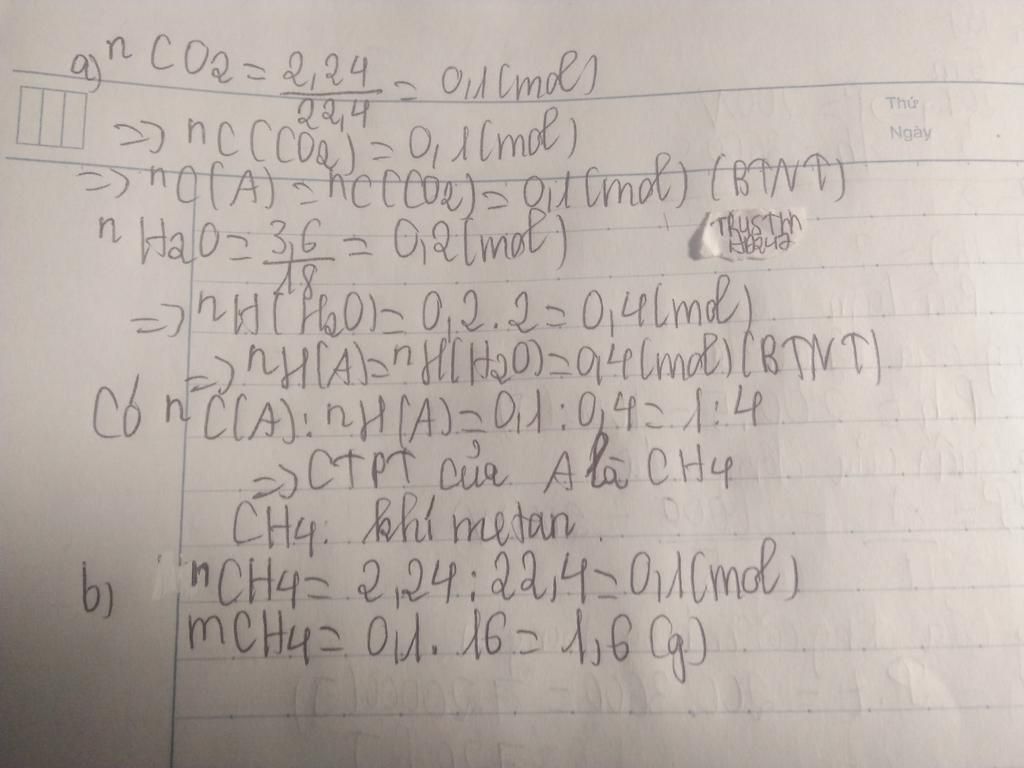 a) nCO2 = 2,24/22,4 = 0,1(mol)
Thứ
Ngày
=> nC(CO2) = 0,1(mol)
=> nC(A) = nC(CO2) = 0,1(mol) (BTNT)
nH2O = 3,6/18 = 0,2(mol)
=> nH(H2O) = 0,2.2 = 0,4(mol)
=> nH(A) = nH(H2O) = 0,4(mol) (BTNT)
Có nC(A): nH(A) = 0,1:0,4 = 1:4
=> CTPT của A là CH4
CH4: khí metan
b) nCH4 = 2,24:22,4 = 0,1(mol)
mCH4 = 0,1.16 = 1,6(g)